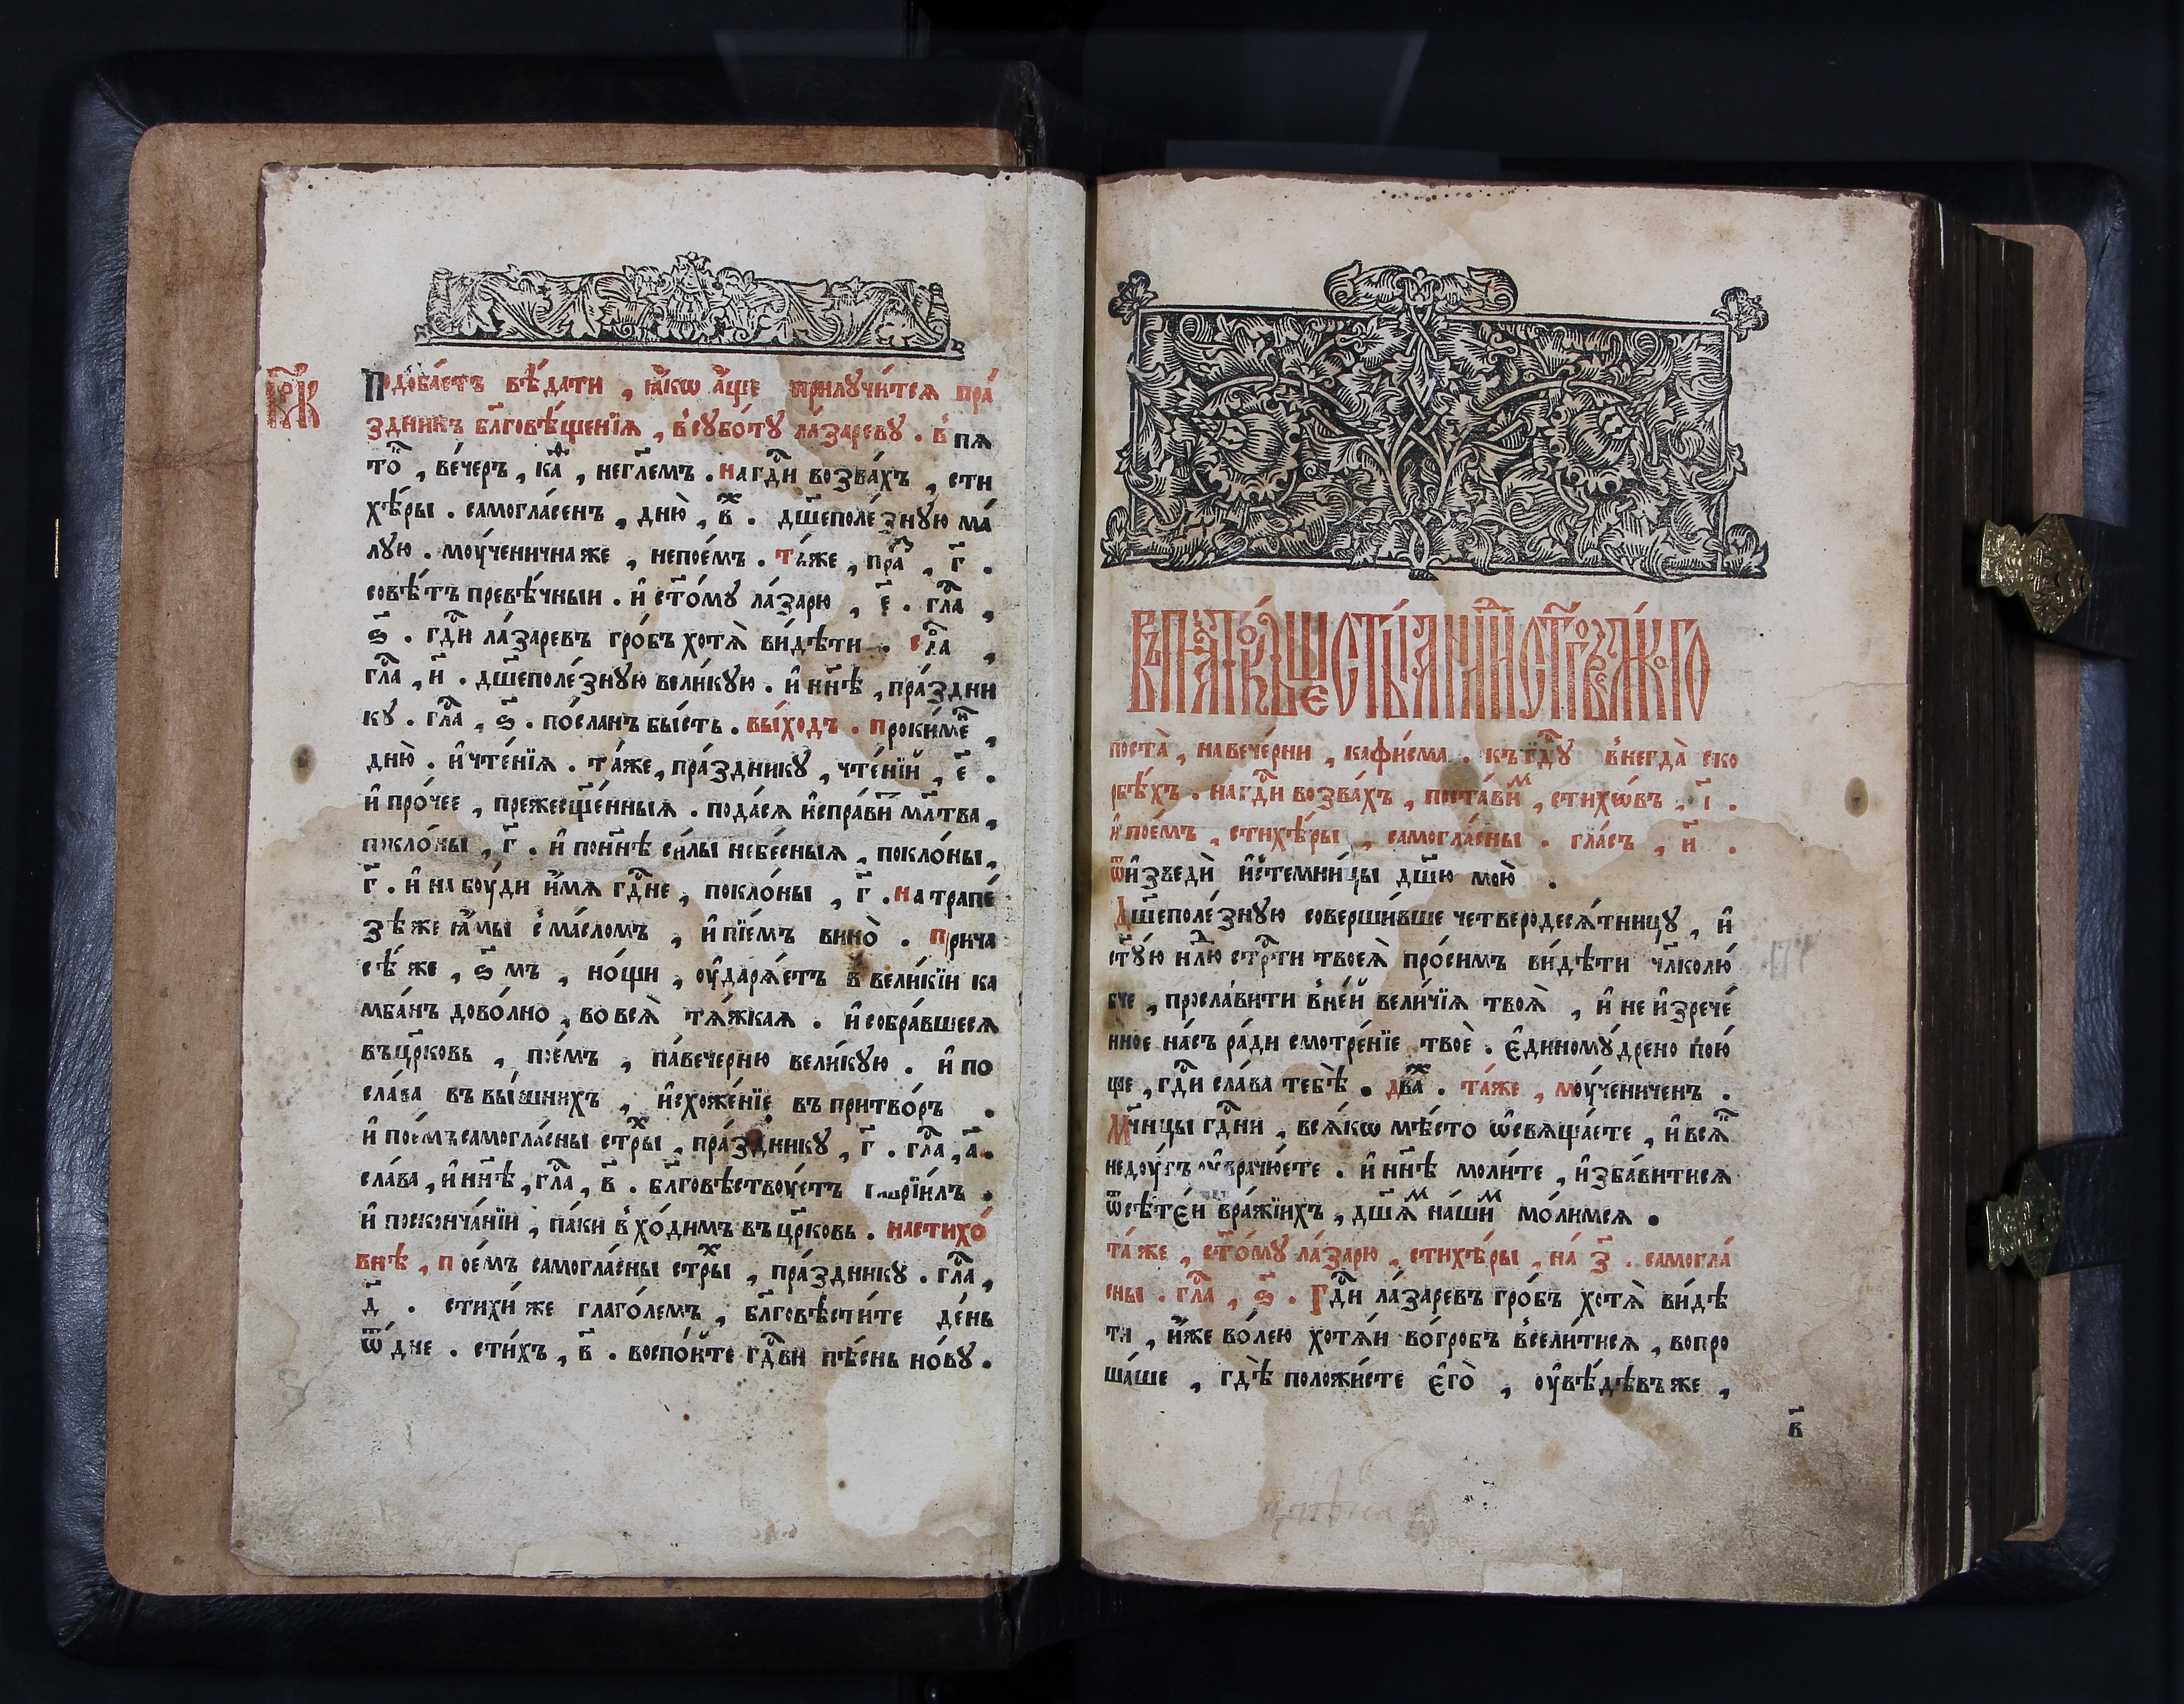 Подоба́етъ вѣ́дати , ꙗ҆́кѡ а҆́ще прилꙋчи́тсѧ пра́
здникъ бл҃говѣ́щенїѧ , в̾сꙋбо́тꙋ ла́зареву . в̾пѧ
то̑ , ве́черъ , ка̑ , негл҃емъ . на гдⷭ҇и возва́хъ , сти
хѣ́ры . самогла́сенъ , дню̀ , в҃ . дш҃еполе́знꙋю ма́
лꙋю . моу́ченична же , непое́мъ . та́же , пра́ , г҃ .
совѣ́тъ превѣ́чныи . и҆ ст҃о́мꙋ ла́зарю , е҃ . гла ,
ѕ҃ . гдⷭ҇и ла́заревъ гро́бъ хотѧ̀ ви́дѣти . сла ,
гла , и҃ . дш҃еполе́знꙋю вели́кꙋю . и҆ нн҃ѣ , пра́здни
кꙋ . гла , ѕ҃ . по́сланъ бы́сть . вы́ходъ . проки́ме ,
дню̀ . и҆ чте́нїѧ . та́же , пра́здникꙋ , чте́нїи , е҃ .
и҆ про́чее , прежесщ҃е́нныѧ . пода́сѧ и҆спра́ви мл҃тва ,
покло́ны , г҃ . и҆ понн҃ѣ си́лы небе́сныѧ , покло́ны ,
г҃ . и҆ на боу́ди и҆́мѧ гдⷭ҇не , покло́ны , г҃ . на трапе́
зѣ же ꙗ҆мы̀ с̾ ма́сломъ , и҆ пїе́мъ вино̀ . прича
сѣ́ же , ѕ҃ мъ , но́щи , оу҆дарѧ́етъ в̾ вели́кїи ка
мба́нъ дово́лно , во всѧ̀ тѧ́жкаѧ . и҆ собра́вшесѧ
въ цр҃ковь , пое́мъ , па́вечерню вели́кꙋю . и҆ по
сла́ва въ вы́шнихъ , и҆схожде́нїе въ притво́ръ .
и҆ пое́мъ самогла́сны стрⷯы , пра́здникꙋ , г҃ . гла , а҃ .
сла́ва , и҆ нн҃ѣ , гла , в҃ . бл҃говѣствоуетъ гаврїи́лъ .
и҆ посконча́нїи , па́ки в̾хо́димъ въ цр҃ковь . на стихо́
внѣ , пое́мъ самогла́сны стрⷯы , пра́здникꙋ . гла ,
д҃ . стихи́ же глаго́лемъ , бл҃говѣсти́те де́нь
ѿ дне . сти́хъ , в҃ . воспо́ите гдⷭ҇ви пѣ́снь но́вꙋ .
поста̀ , на вече́рни , кафи́сма . къ гдⷭ҇ꙋ в̾негда̀ ско
рбѣ́хъ . на гдⷭ҇и возва́хъ , поста́виⷨ , стихѡ́въ , і҃ .
и҆ пое́мъ , стихѣ́ры , самогла́сны . гла́съ , и҃ .
ѿ и҆зведѝ и҆стемни́цы дш҃ю мою̀ .
Дш҃еполе́знꙋю соверши́вше четвередесѧ́тницꙋ , и҆
ст҃ꙋ́ю нлⷣю стрⷭ҇ти твоеѧ̀ про́симъ ви́дѣти чл҃колю́
бче , просла́вити в̾не́й вели́чїѧ твоѧ̀ , и҆ не и҆зрече́
нное на́съ ра́ди смотре́нїе твоѐ . є҆диномꙋ́дрено пою́
ще , гдⷭ҇и сла́ва тебѣ̀ . двⷤа . та́же , моу́ченичен .
Мч҃нцы гдⷭ҇ни , всѧ́кѡ мѣ́сто ѡ҆свѧща́ете , и҆ всѧ̑
недоу́гъ оу҆врачю́ете . и҆ нн҃ѣ моли́те , и҆зба́витисѧ
ѿ сѣ́теи вра́жїихъ , дш҃ѧⷨ на́шиⷨ мо́лимсѧ .
та́же , ст҃о́мꙋ ла́зарю , стихѣ́ры , на́ з҃ . самогла́
сны . гла , ѕ҃ . Гдⷭ҇и ла́заревъ гро́бъ хотѧ̀ ви́дѣ
ти , и҆́же во́лею хотѧ́и во́гробъ в̾сели́тисѧ , вопро
ша́ше , гдѣ̀ положи́сте є҆го̀ , оу҆вѣ́дѣвъ же ,
в҃